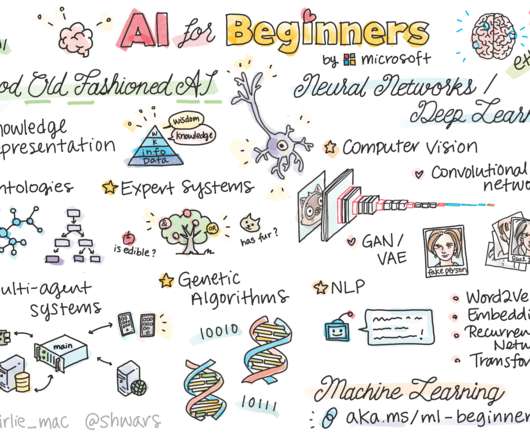 AI for Beginners
by microsoft
od Old Fashioned AI
Neural Networks /
Deep Learn
nowledge
presentation
wisdom
knowledge
W
K
info
Data
Computer Vision
Convolutional
netwo
ntologies
Expert Systems
is edible?
OR
has fur?
GAN/
VAE
fake person
ulti-agent
systems
main
Genetic
Algorithms
10010
10111
NLP
Word2Ve
Embeddi
Recurren
Netw
Transfo
Machine Learning
aka.ms/ml-beginner
irlie_mac @shwars